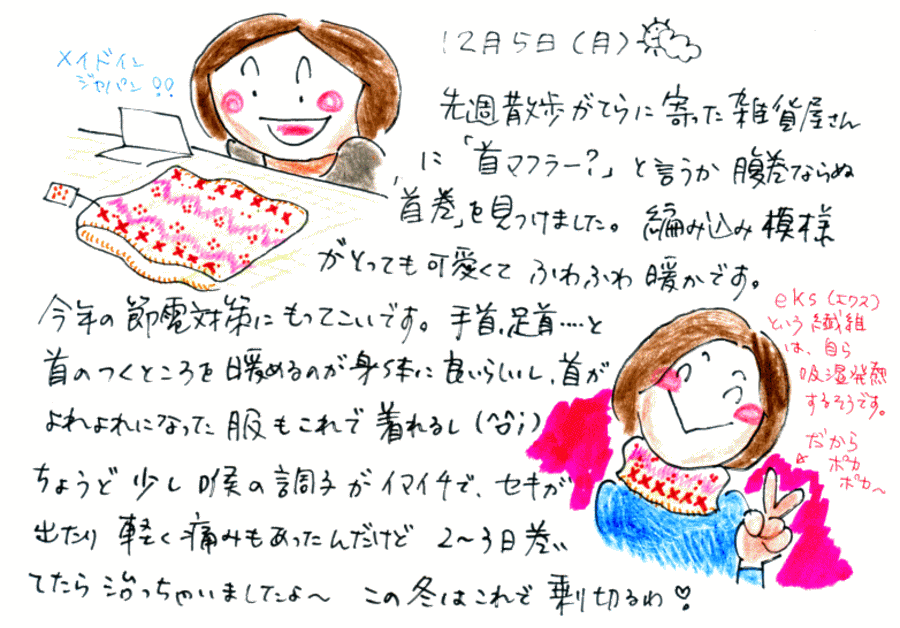 メイドイン
ジャパン!!
12月5日(月)
先週散歩がてらに寄った雑貨屋さん
に「首マフラー?」と言うか腹巻ならぬ
「首巻」を見つけました。編み込み模様
がとっても可愛くてふわふわ暖かです。
今年の節電対策にもってこいです。手首、足首‥‥と
首のつくところを暖めるのが身体に良いらしいし、首が
よれよれになった服もこれで着れるし(^^;)
ちょうど少し喉の調子がイマイチで、セキが
出たり軽く痛みもあったんだけど2〜3日巻い
てたら治っちゃいましたよ〜 この冬はこれで乗り切るわ♡
eks(エクス)
という繊維
は、自ら
吸湿発熱
するそうです。
だから
ポカ
ポカ〜